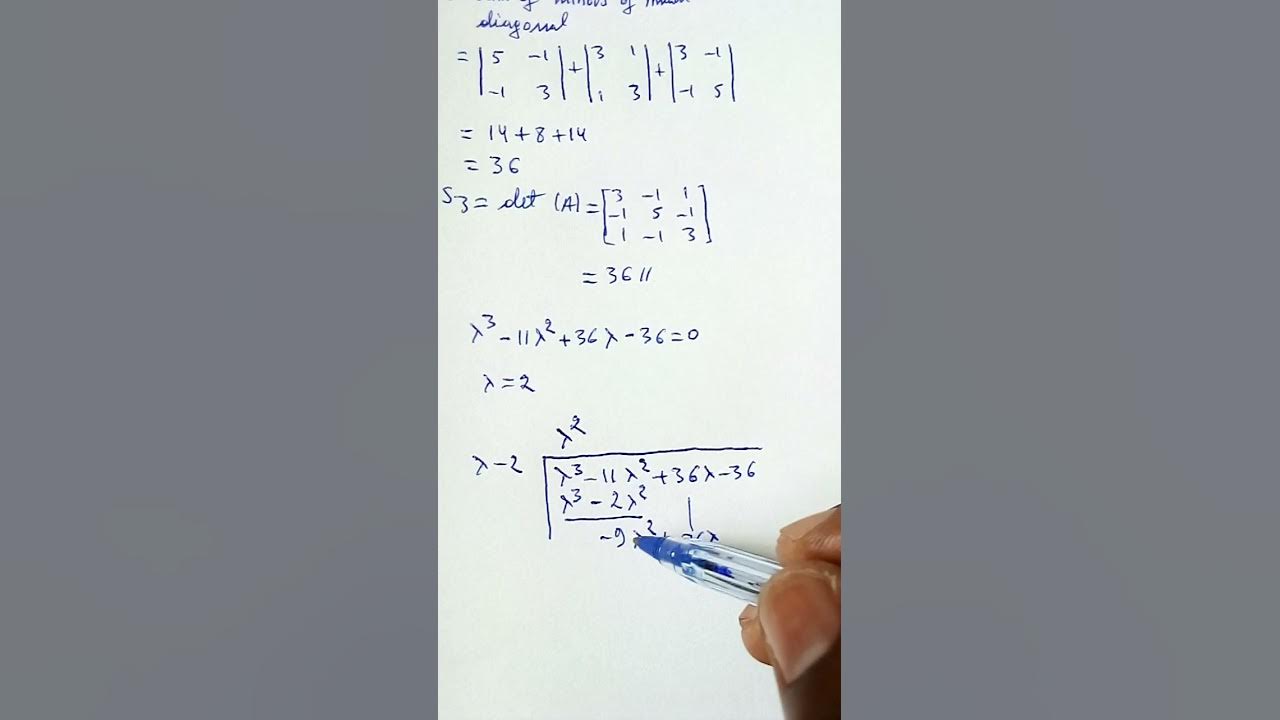 of minors of
diagonal
= |5 -1| + |3 1| + |3 -1|
|-1 3| |1 3| |-1 5|
= 14 + 8 + 14
= 36
S3 = det (A) = [3 -1 1]
[-1 5 -1]
[1 -1 3]
= 36 //
λ³ - 11λ² + 36λ - 36 = 0
λ = 2
λ²
λ - 2 | λ³ - 11λ² + 36λ - 36
λ³ - 2λ²
-9λ² +